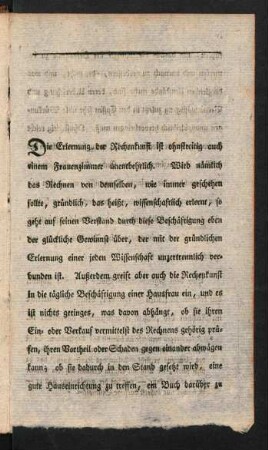 Die Erlernung der Rechenkunst ist ohnstreitig auch
einem Frauenzimmer unentbehrlich. Wird nämlich
das Rechnen von demselben, wie immer geschehen
sollte, gründlich, das heißt, wissenschaftlich erlernt, so
geht auf seinen Verstand durch diese Beschäftigung eben
der glückliche Gewinnst über, der mit der gründlichen
Erlernung einer jeden Wissenschaft unzertrennlich ver-
bunden ist. Außerdem greift aber auch die Rechenkunst
in die tägliche Beschäftigung einer Hausfrau ein, und es
ist nichts geringes, was davon abhängt, ob sie ihren
Ein- oder Verkauf vermittelst des Rechnens gehörig prü-
fen, ihren Vortheil oder Schaden gegen einander abwägen
kann; ob sie dadurch in den Stand gesetzt wird, eine
gute Hauseinrichtung zu treffen, ein Buch darüber zu